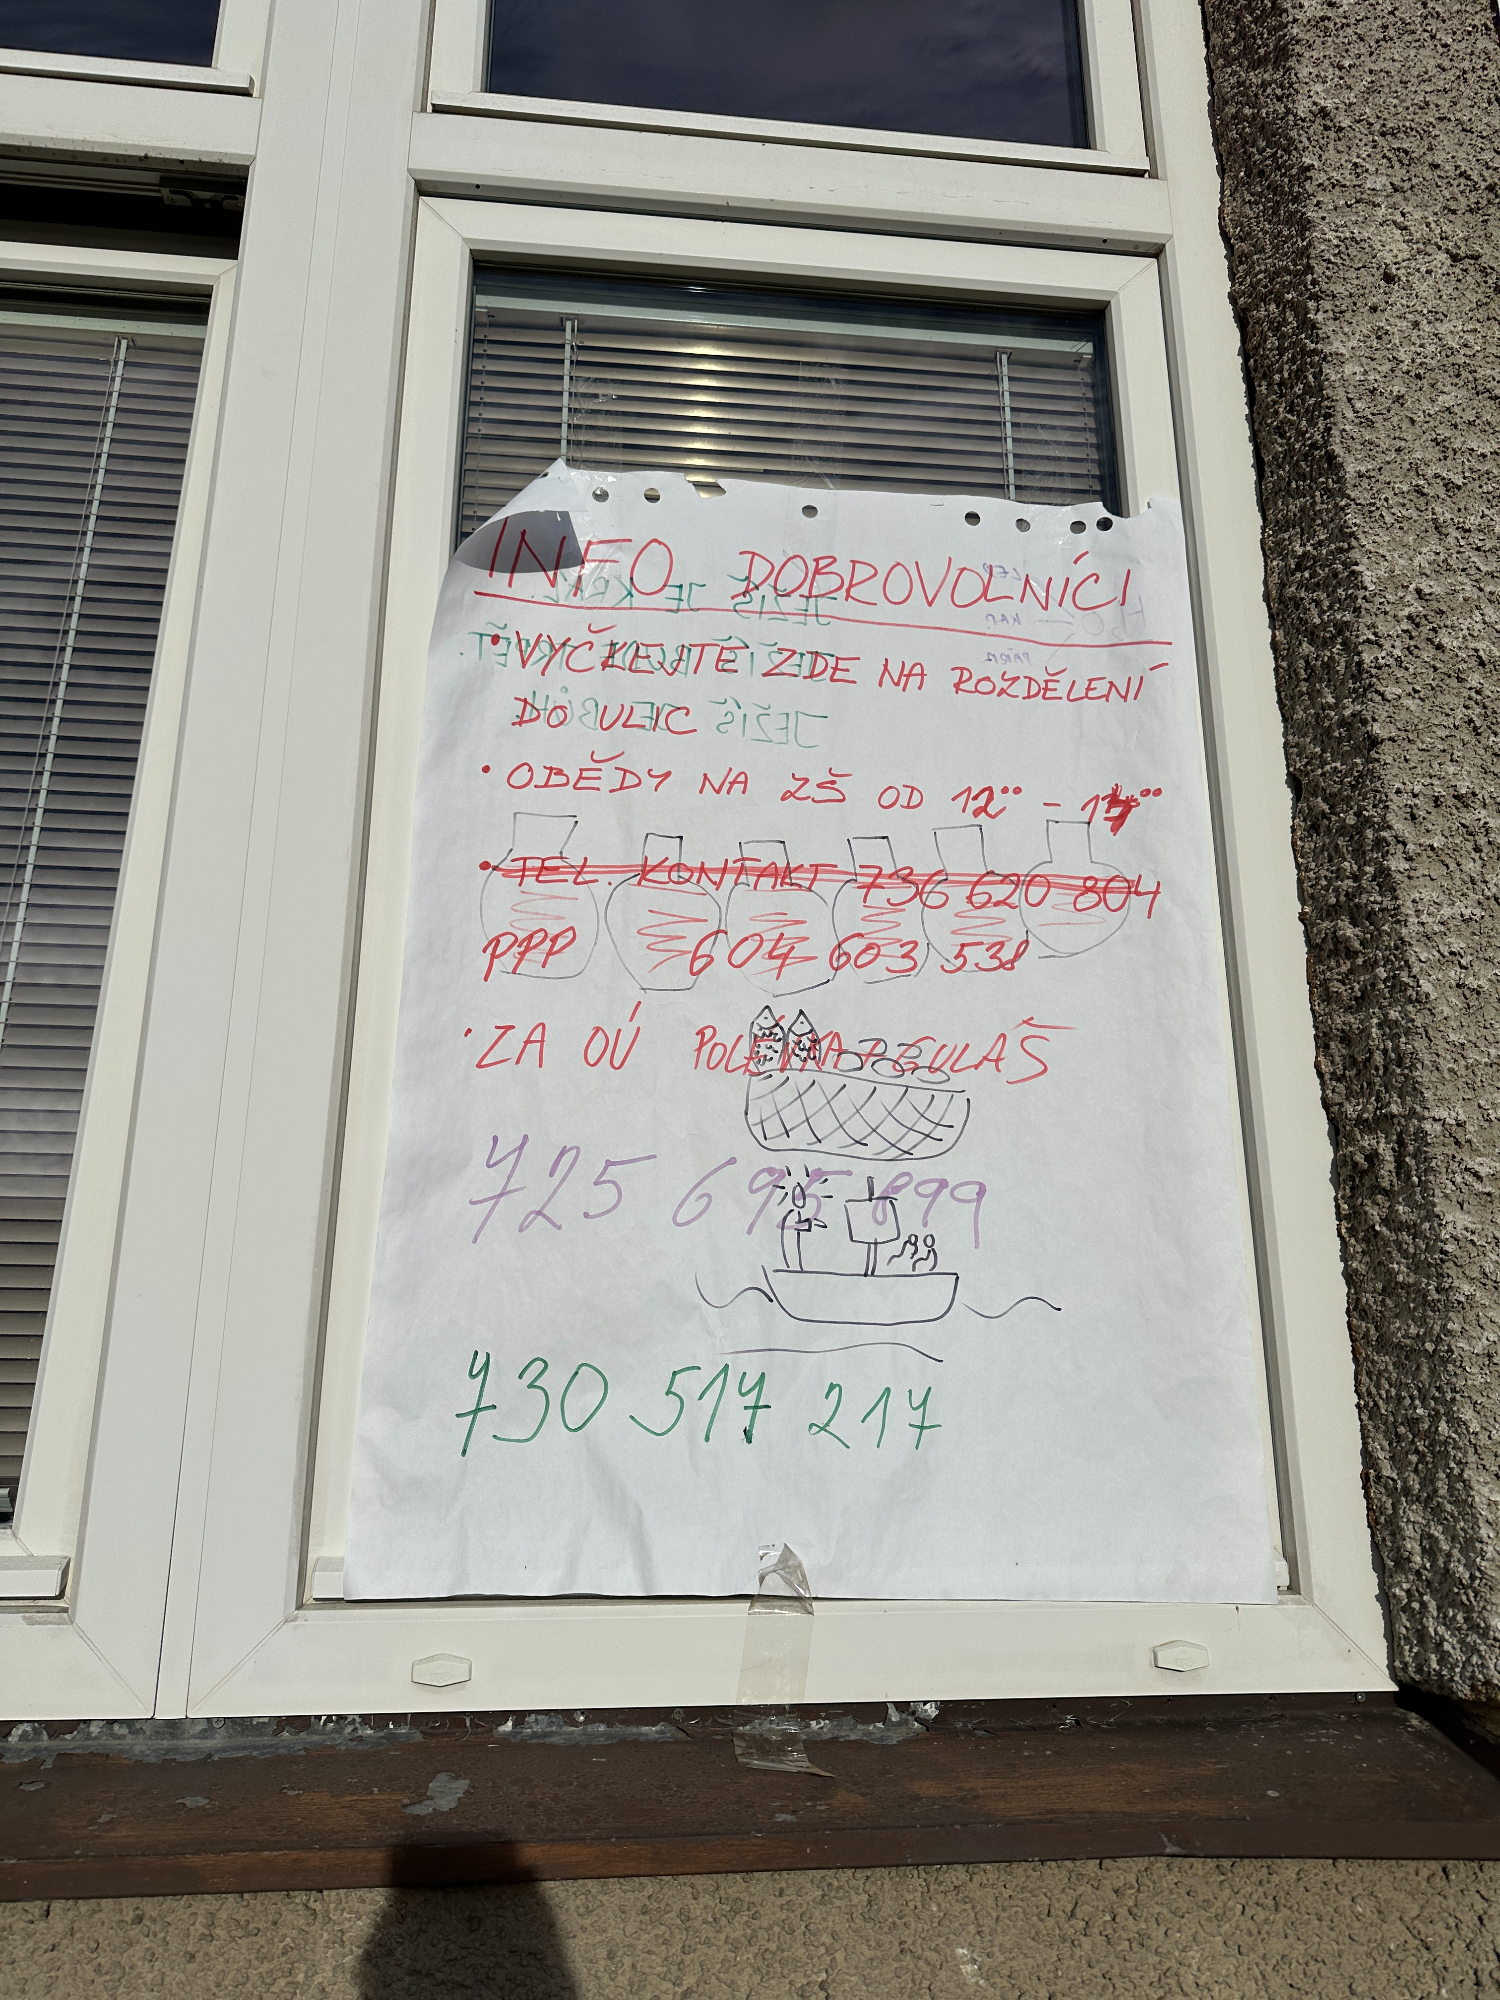 INFO DOBROVOLNÍCI
• VYČKEJTE ZDE NA ROZDĚLENÍ
DO ULIC
• OBĚDY NA ZŠ OD 12°° -
• TEL. KONTAKT 736 620 804
PPP 604 603 538
• ZA OÚ POLÉVKA + GULÁŠ
725 695 899
730 517 217
JEŽÍŠ JE
JEŽÍŠ
JEŽÍŠ JE BŮH